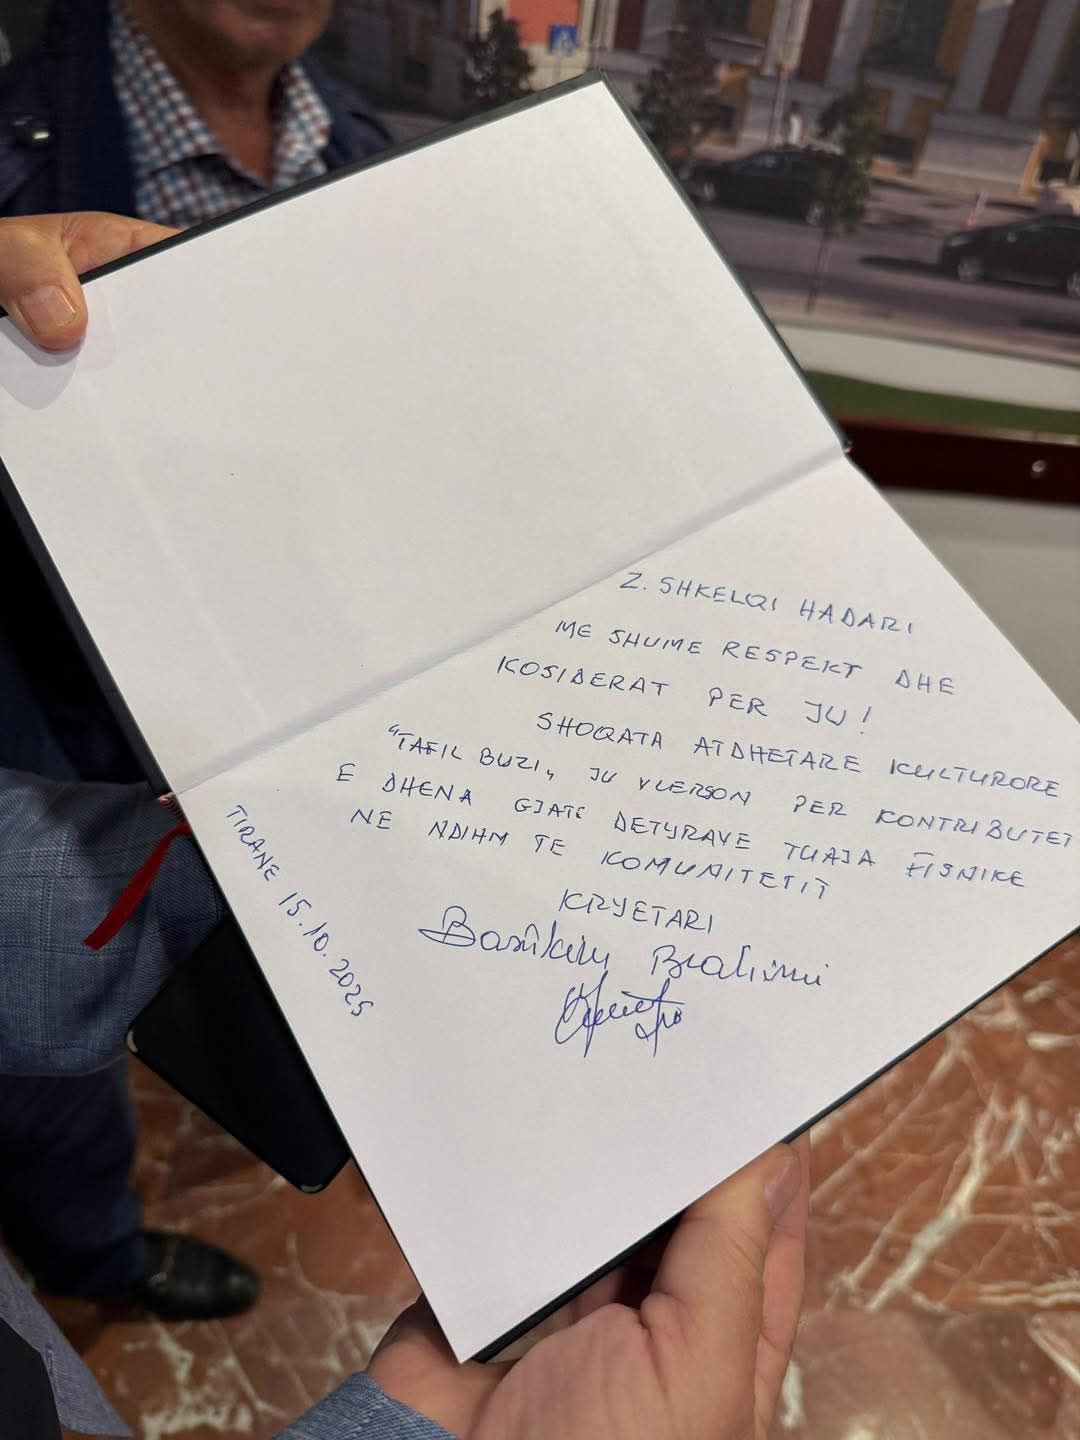 Z. SHKELQI HADARI
ME SHUME RESPEKT DHE
KOSIDERAT PER JU!
SHOQATA ATDHETARE KULTURORE
"TAFIL BUZI„ JU VLERSON PER KONTRIBUTET
E DHENA GJATË DETYRAVE TUAJA FISNIKE
NE NDIHM TE KOMUNITETIT
KRYETARI
Bashkim Brahimi
TIRANE 15.10.2025